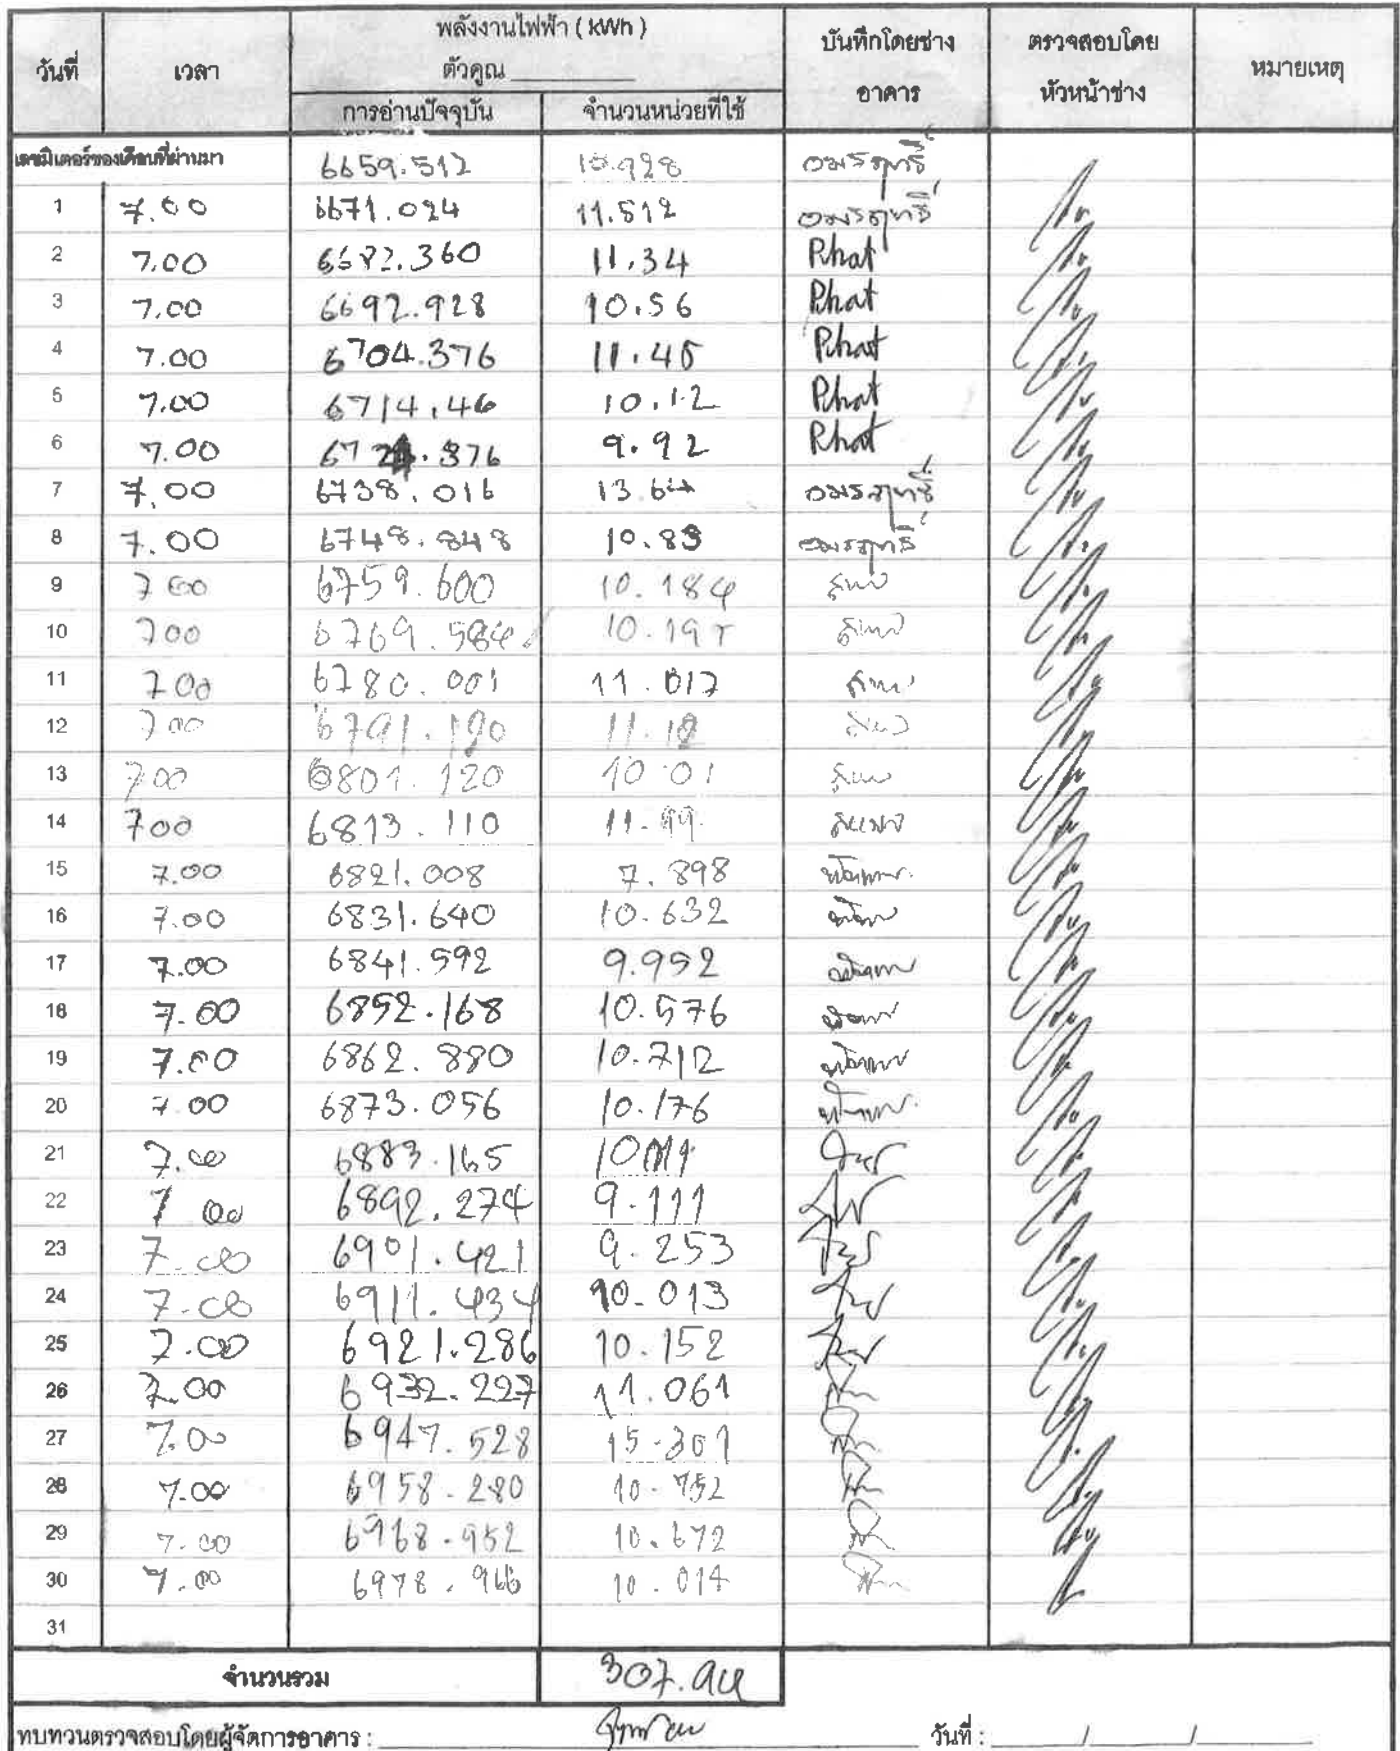 พลังงานไฟฟ้า ( kWh )
วันที่ เวลา ตัวคูณ บันทึกโดยช่างอาคาร ตรวจสอบโดยหัวหน้าช่าง หมายเหตุ
การอ่านปัจจุบัน จำนวนหน่วยที่ใช้
เลขมิเตอร์ของเดือนที่ผ่านมา 6659.512 10.928 อมรฤทธิ์
1 7.00 6671.024 11.512 อมรฤทธิ์
2 7.00 6682.360 11.34 Phat
3 7.00 6692.928 10.56 Phat
4 7.00 6704.376 11.45 Phat
5 7.00 6714.46 10.12 Phat
6 7.00 9.92 Phat
7 7.00 6738.016 13.64 อมรฤทธิ์
8 7.00 6748.848 10.83 อมรฤทธิ์
9 7 00 6759.600 10.184
10 700 6769.584 10.19
11 700 6780.001 11.017
12 700 6791.190 11.18
13 700 6801.120 10.01
14 700 6813.110 11.99
15 7.00 6821.008 7.898
16 7.00 6831.640 10.632
17 7.00 6841.592 9.952
18 7.00 6852.168 10.576
19 7.00 6862.880 10.712
20 7.00 6873.056 10.176
21 7.00 6883.165
22 7 00 6892.274 9.111
23 7.00 6901.421 9.253
24 7.00 6911.434 10.013
25 7.00 6921.286 10.152
26 7.00 6932.227 11.061
27 7.00 6947.528 15.301
28 7.00 6958.280 10.752
29 7.00 6968.952 10.672
30 7.00 6978.966 10.014
31
จำนวนรวม
ทบทวนตรวจสอบโดยผู้จัดการอาคาร : วันที่ : / /